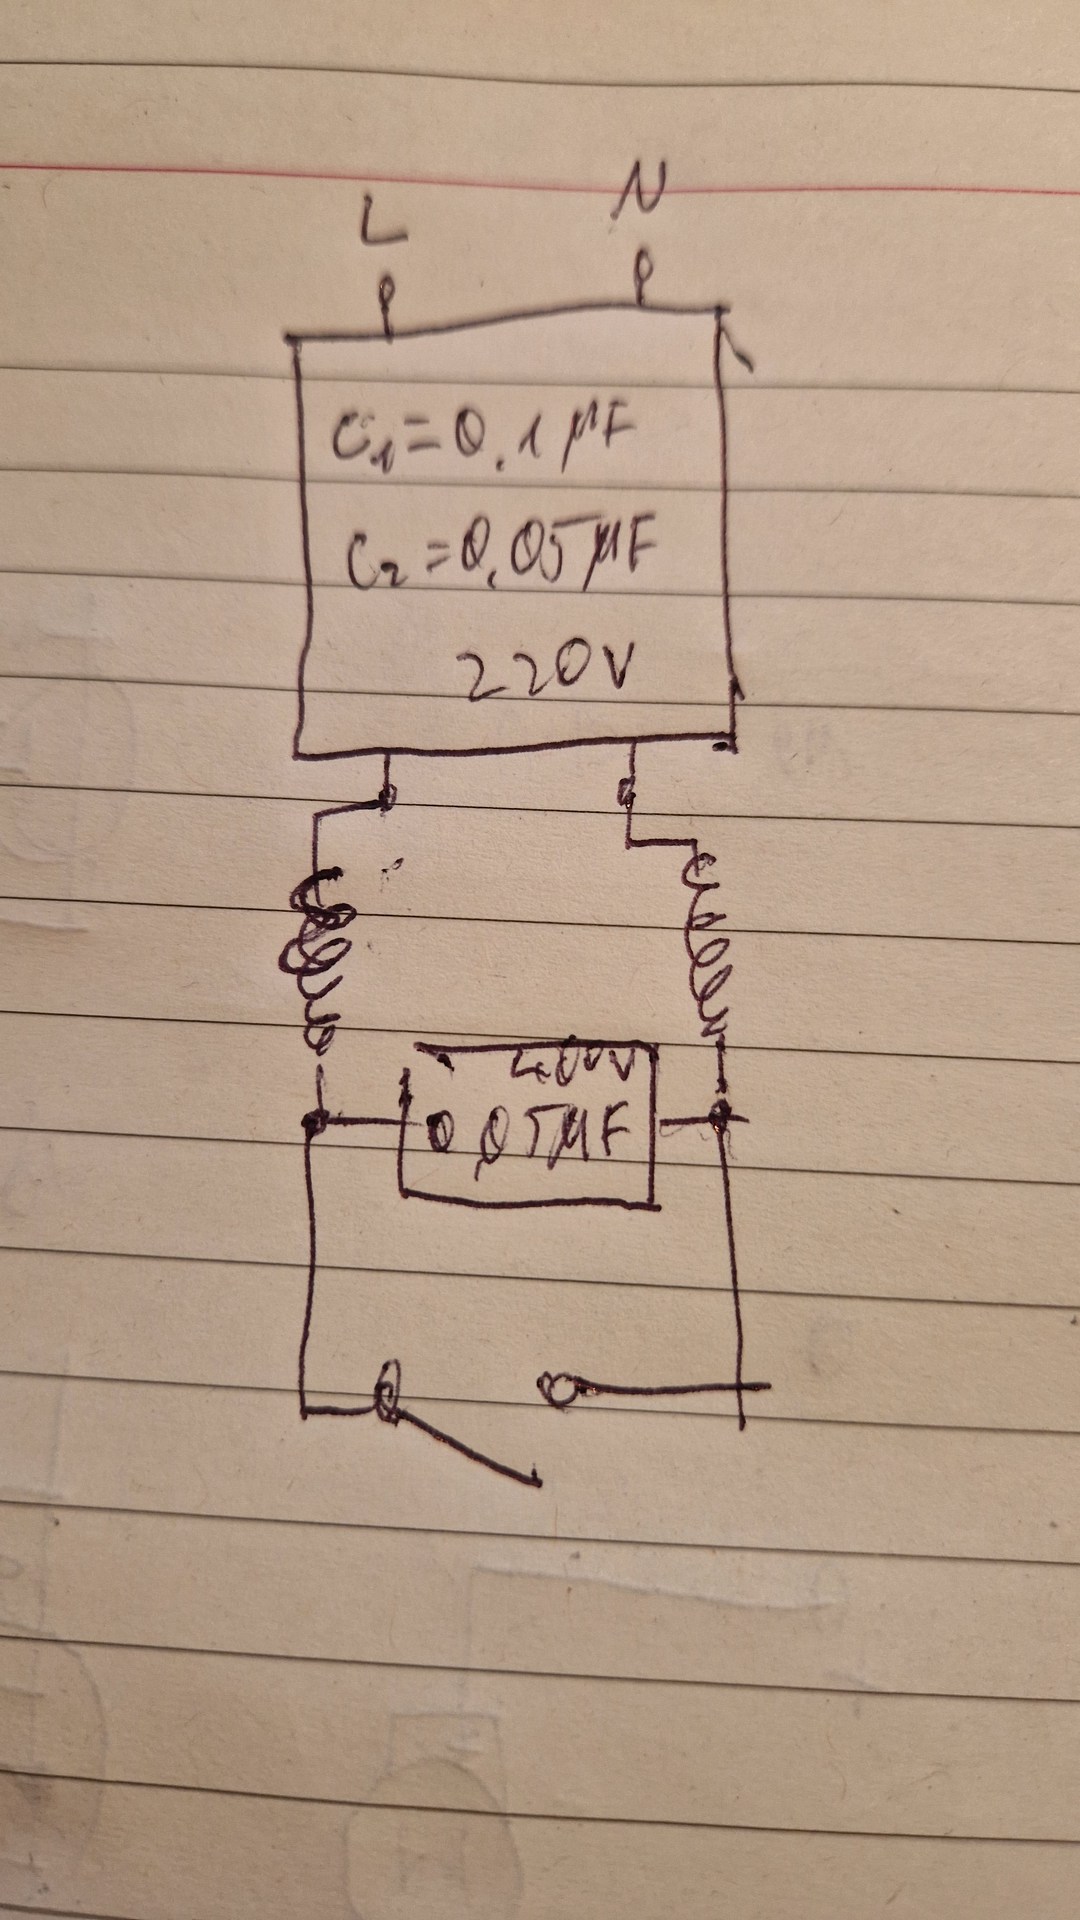 L N
C₁=0.1 µF
C₂=0.05µF
220V
400V
0,05µF